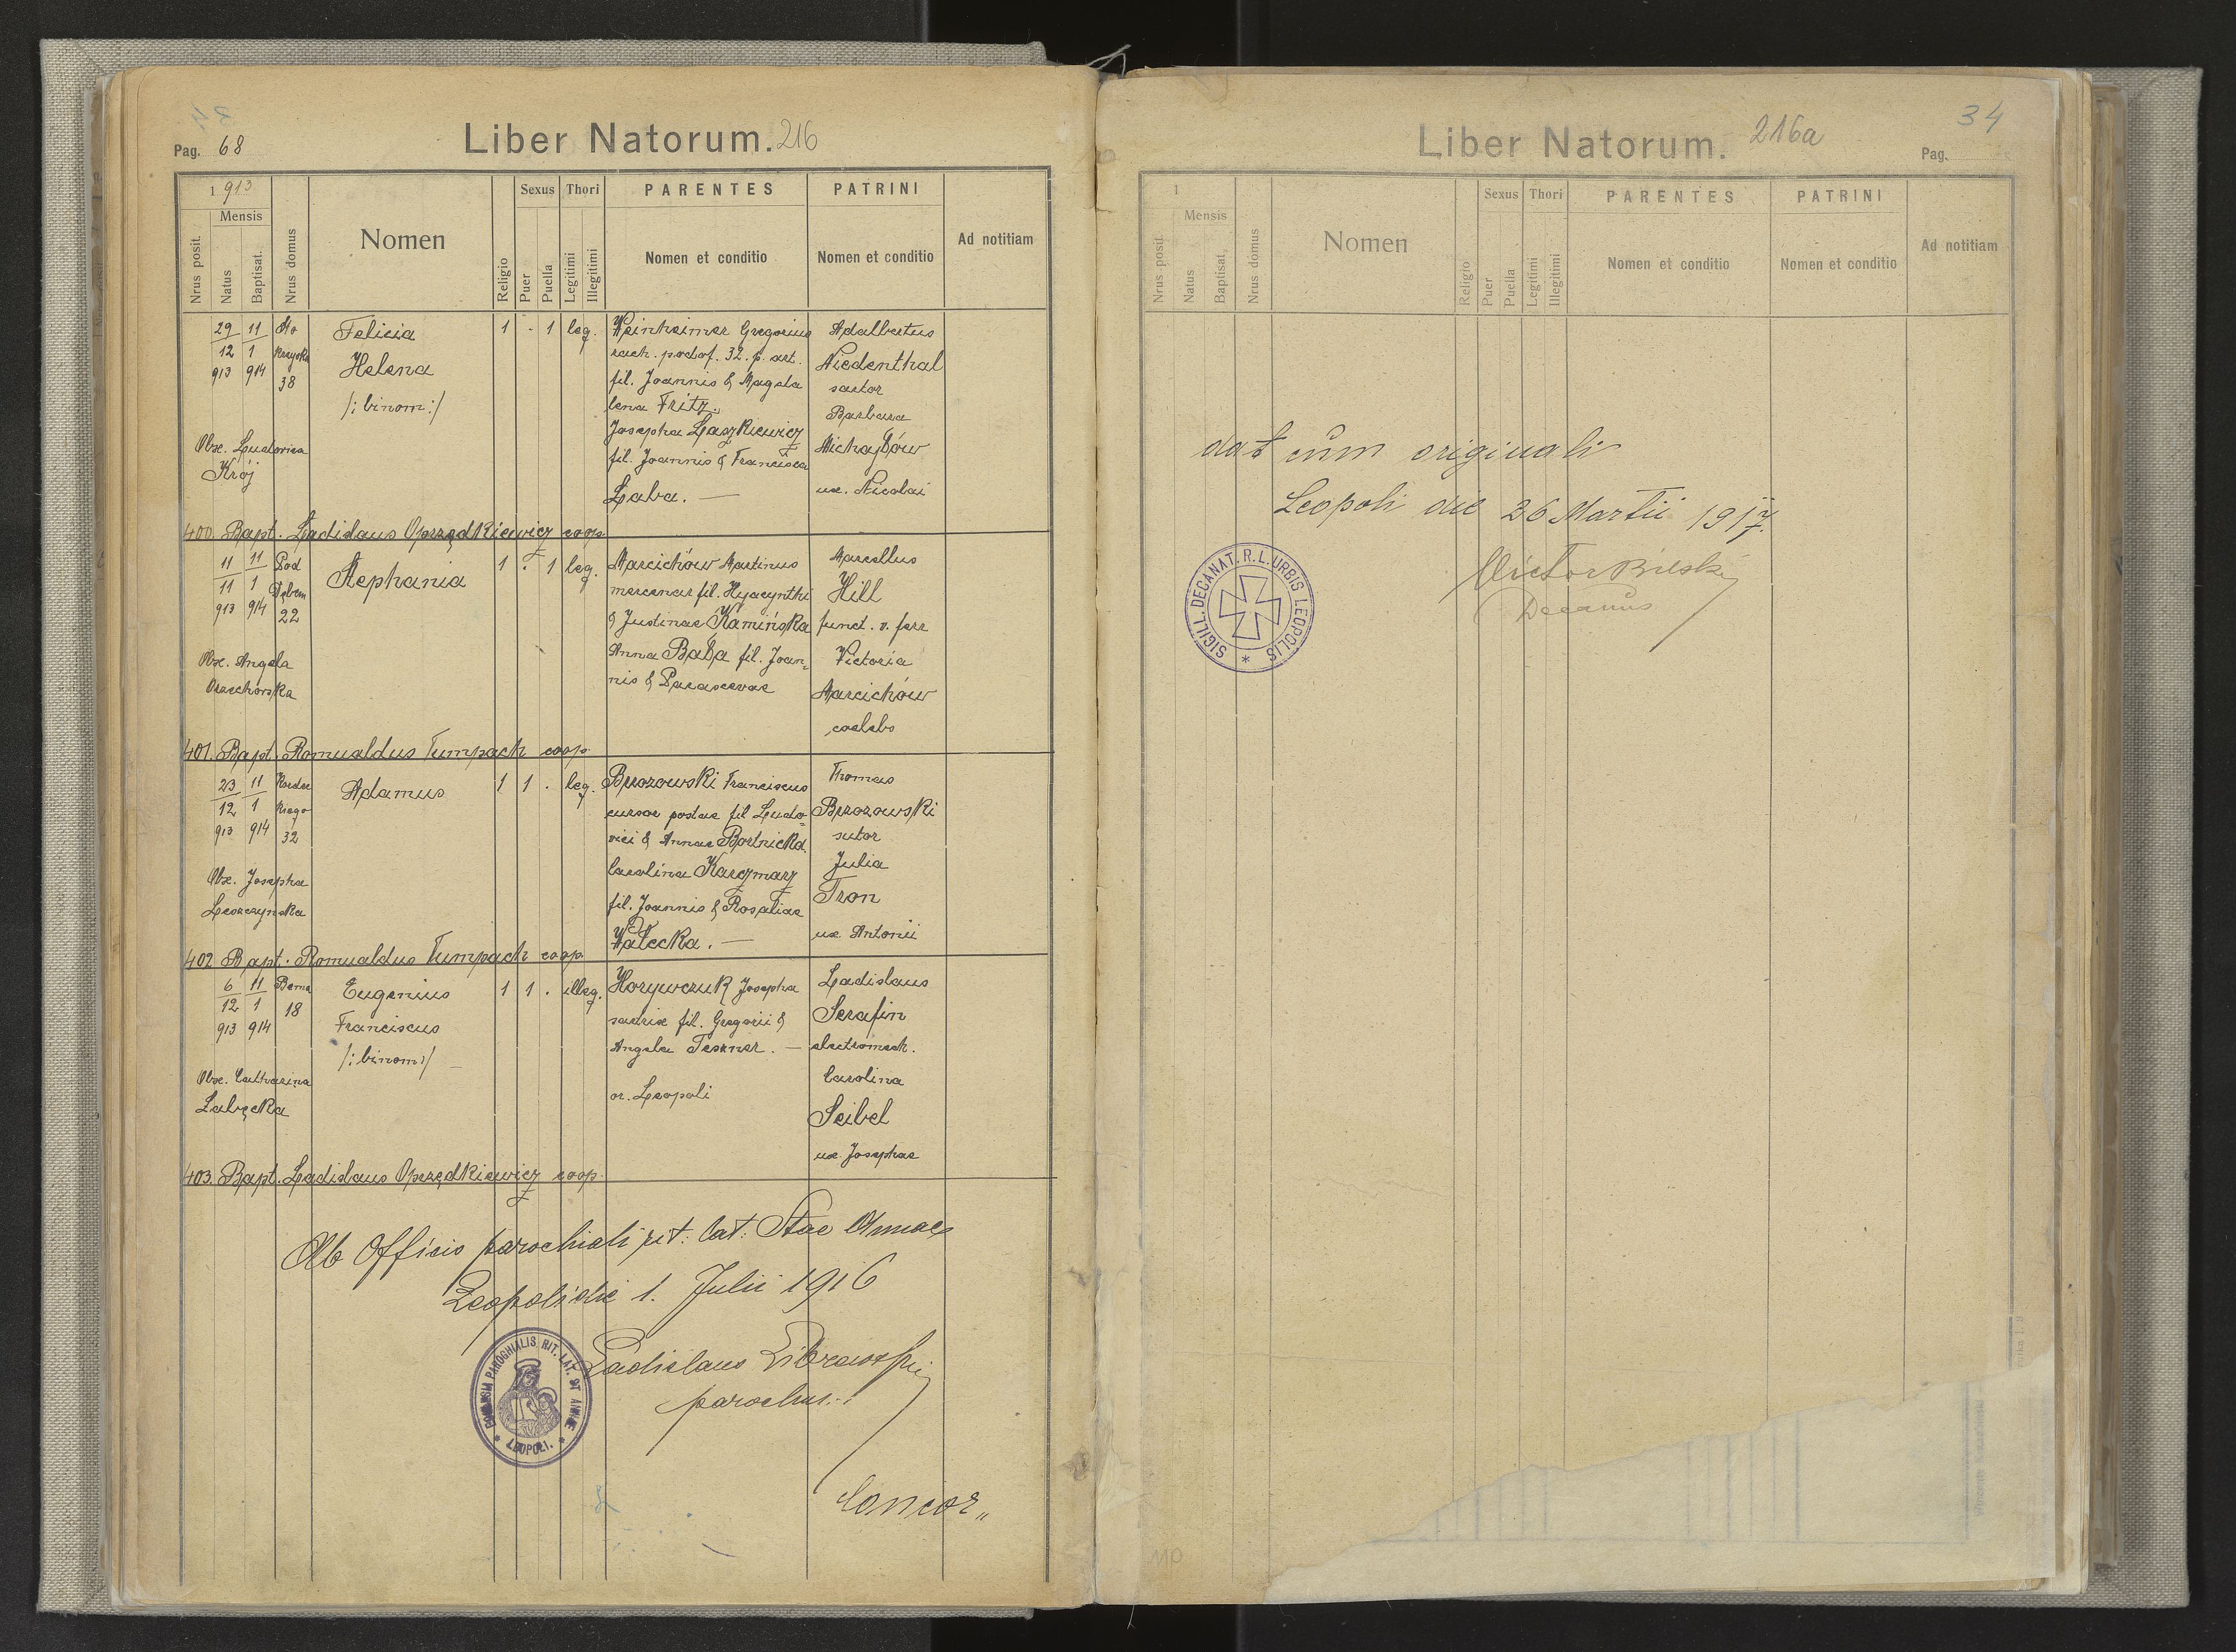 Pag. 68
Liber Natorum. 216
1913
Nrus posit.
Mensis
Natus
Baptisat.
Nrus domus
Nomen
Religio
Sexus
Puer
Puella
Thori
Legitimi
Illegitimi
PARENTES
Nomen et conditio
PATRINI
Nomen et conditio
Ad notitiam
29 11
12 1
913 914
38
Felicia
Helena
/: binom :/
1 - 1 leg.
Weinheimer Gregorius
rach. podof. 32. p. art.
fil. Joannis & Magda
lena Fritz.
Josepha Laszkiewicz
fil. Joannis & Francisca
Laba. —
Adalbertus
Niedenthal
sartor
Barbara
Michajłów
ux. Nicolai
Obx. Ludovica
Krój
400. Bapt. Ladislaus Oprzędkiewicz coop.
11 11 Pod
11 1 Dębem
913 914 22
Stephania
1 . 1 leg.
Marcichów Martinus
mercenar fil. Hyacynthi
& Justinae Kamińska
Anna Baba fil. Joan-
nis & Parascevae
Marcellus
Hill
funct. v. ferr
Victoria
Marcichów
coelebs
Obx. Angela
401. Bapt. Romualdus Tumpach coop.
23 11 Kordec
12 1 kiego
913 914 32
Adamus
1 1 . leg.
Brzozowski Franciscus
cursor postae fil Ludo-
vici & Annae Bortnicka.
Carolina Karczmarz
fil. Joannis & Rosaliae
Wałecka. —
Thomas
Brzozowski
sutor
Julia
Tron
ux. Antonii
Obx. Josepha
Leszczynska
402 Bapt. Romualdus Tumpach coop.
6 11 Bema
12 1 18
913 914
Eugenius
Franciscus
/: binom :/
1 1 . illeg.
Horywczuk Josepha
sartrix fil. Gregorii &
Angela Teszner. —
or. Leopoli
Ladislaus
Serafin
electromech.
Carolina
Seibel
ux. Josephae
Obx. Catharina
Zalęcka
403. Bapt. Ladislaus Oprzędkiewicz coop.
Ab Officio parochiali rit: lat: Stae Annae
Leopoli die 1. Julii 1916
Ladislaus Librewski
parochus
PAROCHIALIS RIT. LAT. ST. ANNAE
* LEOPOLI. *
Concor„
34
Liber Natorum. 216a
Pag.
1
Nrus posit.
Mensis
Natus
Baptisat.
Nrus domus
Nomen
Religio
Sexus
Puer
Puella
Thori
Legitimi
Illegitimi
PARENTES
Nomen et conditio
PATRINI
Nomen et conditio
Ad notitiam
dat cum originali
Leopoli die 26 Martii 1917.
Victor Bilski
Decanus
SIGILL. DECANAT. R. L. URBIS LEOPOLIS *